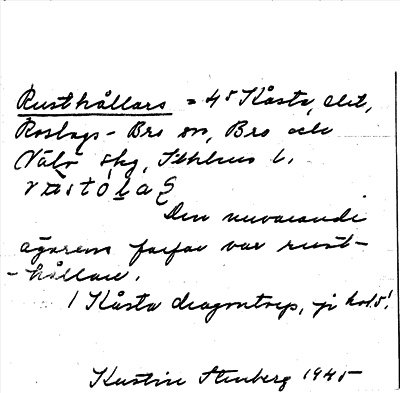 Rusthållars = 4⁵ Kåsta, elit,
Roslags-Bro sn, Bro och
Vätö skg, Sthlms l.
Den nuvarande
ägarens farfar var rust-
-hållare.
1 Kåsta dragontorp,
Kerstin Stenberg 1945